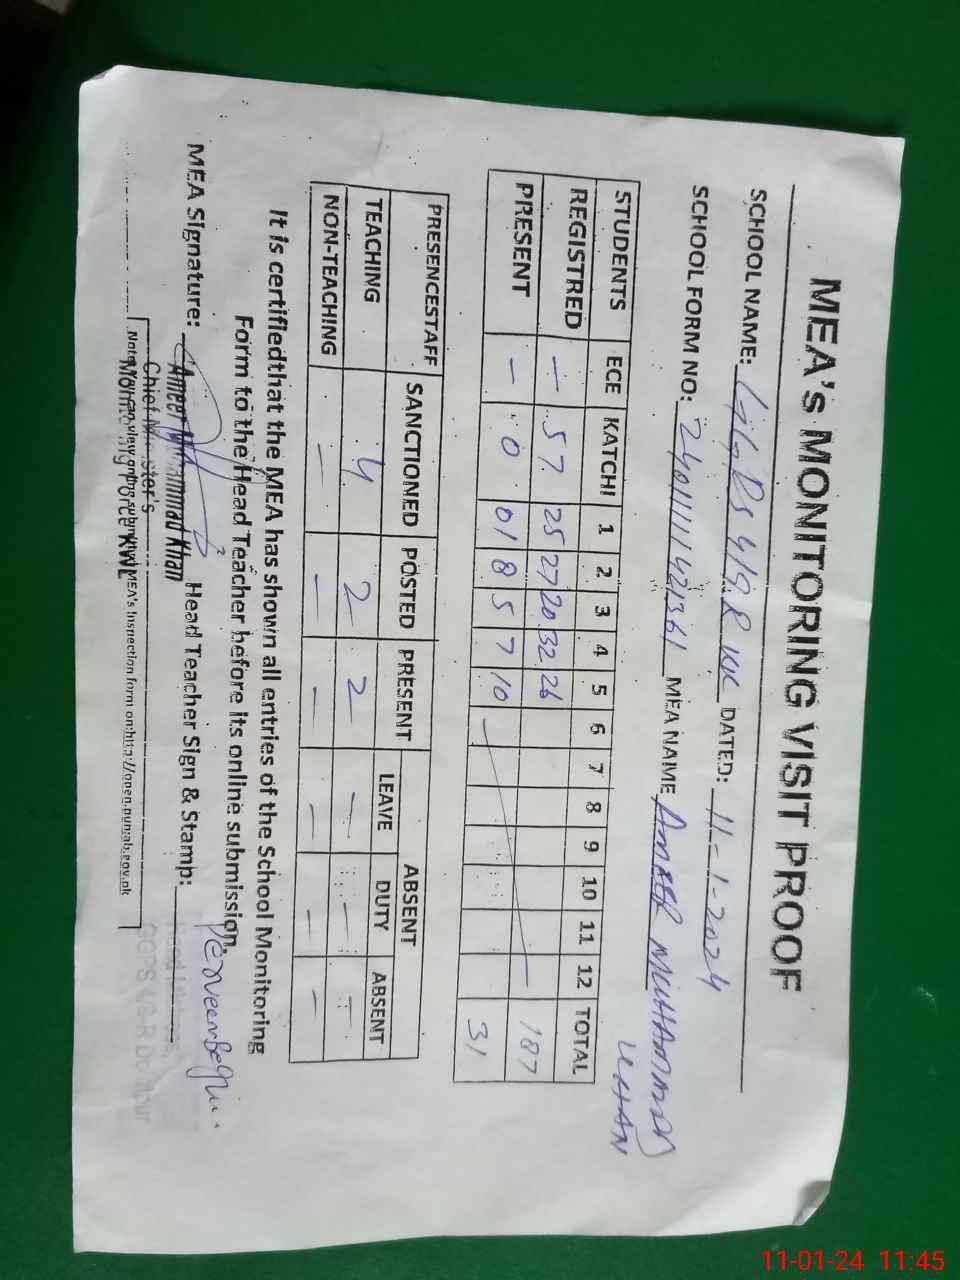 MEA's MONITORING VISIT PROOF
SCHOOL NAME: GGPS 4/9.R KK DATED: 11-1-2024
SCHOOL FORM NO: MEA NAME AMEER MUHAMMAD KHAN
STUDENTS ECE KATCHI 1 2 3 4 5 6 7 8 9 10 11 12 TOTAL
REGISTRED — 57 25 27 20 32 26 187
PRESENT — 0 01 8 5 7 10 31
PRESENCESTAFF SANCTIONED POSTED PRESENT ABSENT
LEAVE DUTY ABSENT
TEACHING 4 2 2 — — —
NON-TEACHING — — — — — —
It is certifiedthat the MEA has shown all entries of the School Monitoring
Form to the Head Teacher before its online submission.
MEA Signature: Head Teacher Sign & Stamp: Perveen Begum
Ameer Muhammad Khan
Chief Minister's
Monitoring Force KWL
Note: You can view online submitted MEA's Inspection form on:http://open.punjab.gov.pk
Head Mistress
GGPS 4/9-R
11-01-24 11:45